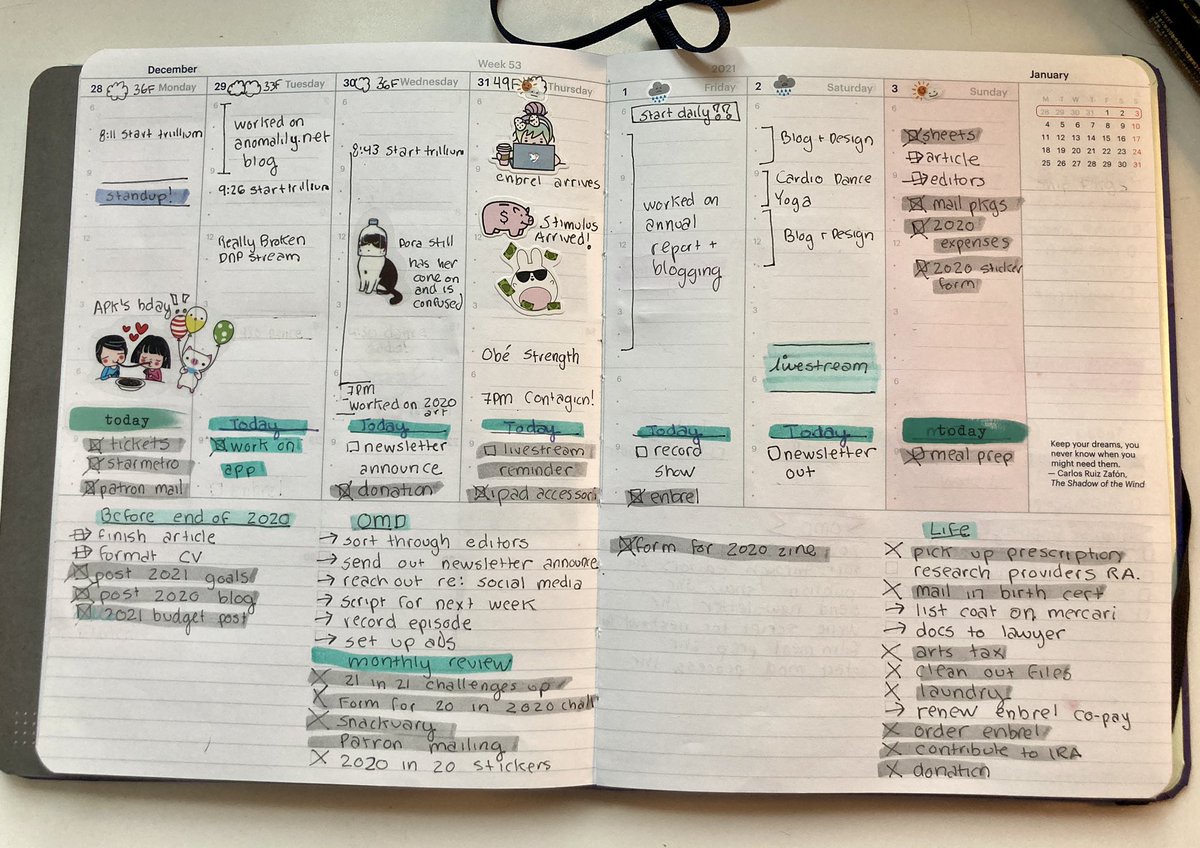 December
Week 53
2021
January
28 36F Monday
8:11 start trillium
standup!
APK's bday!!
today
tickets
starmetro
patron mail
29 33F Tuesday
worked on
anomalily.net
blog
9:26 start trillium
Really Broken
DNP stream
Today
work on
app
30 36F Wednesday
8:43 start trillium
Dora still
has her
cone on
and is
confused
7PM
worked on 2020
art
Today
newsletter
announce
donation
31 49F Thursday
enbrel arrives
$
Stimulus
Arrived!
Obé Strength
7PM Contagion!
Today
livestream
reminder
ipad accessori
1 Friday
start daily!!
worked on
annual
report +
blogging
Today
record
show
enbrel
2 Saturday
Blog + Design
Cardio Dance
Yoga
Blog + Design
livestream
Today
newsletter
out
3 Sunday
sheets
article
editors
mail pkgs
2020
expenses
2020 sticker
form
today
meal prep
M T W T F S S
28 29 30 31 1 2 3
4 5 6 7 8 9 10
11 12 13 14 15 16 17
18 19 20 21 22 23 24
25 26 27 28 29 30 31
Keep your dreams, you
never know when you
might need them.
— Carlos Ruiz Zafón,
The Shadow of the Wind
Before end of 2020
finish article
format CV
post 2021 goals
post 2020 blog
2021 budget post
OMD
→ sort through editors
→ send out newsletter announce
→ reach out re: social media
→ script for next week
→ record episode
→ set up ads
monthly review
X 21 in 21 challenges up
X Form for 20 in 2020 chall
X snackuary
Patron mailing
X 2020 in 20 stickers
form for 2020 zine
LIFE
X pick up prescription
research providers RA.
X mail in birth cert
→ list coat on mercari
→ docs to lawyer
X arts tax
X clean out files
X laundry
→ renew enbrel co-pay
X order enbrel
X contribute to IRA
X donation